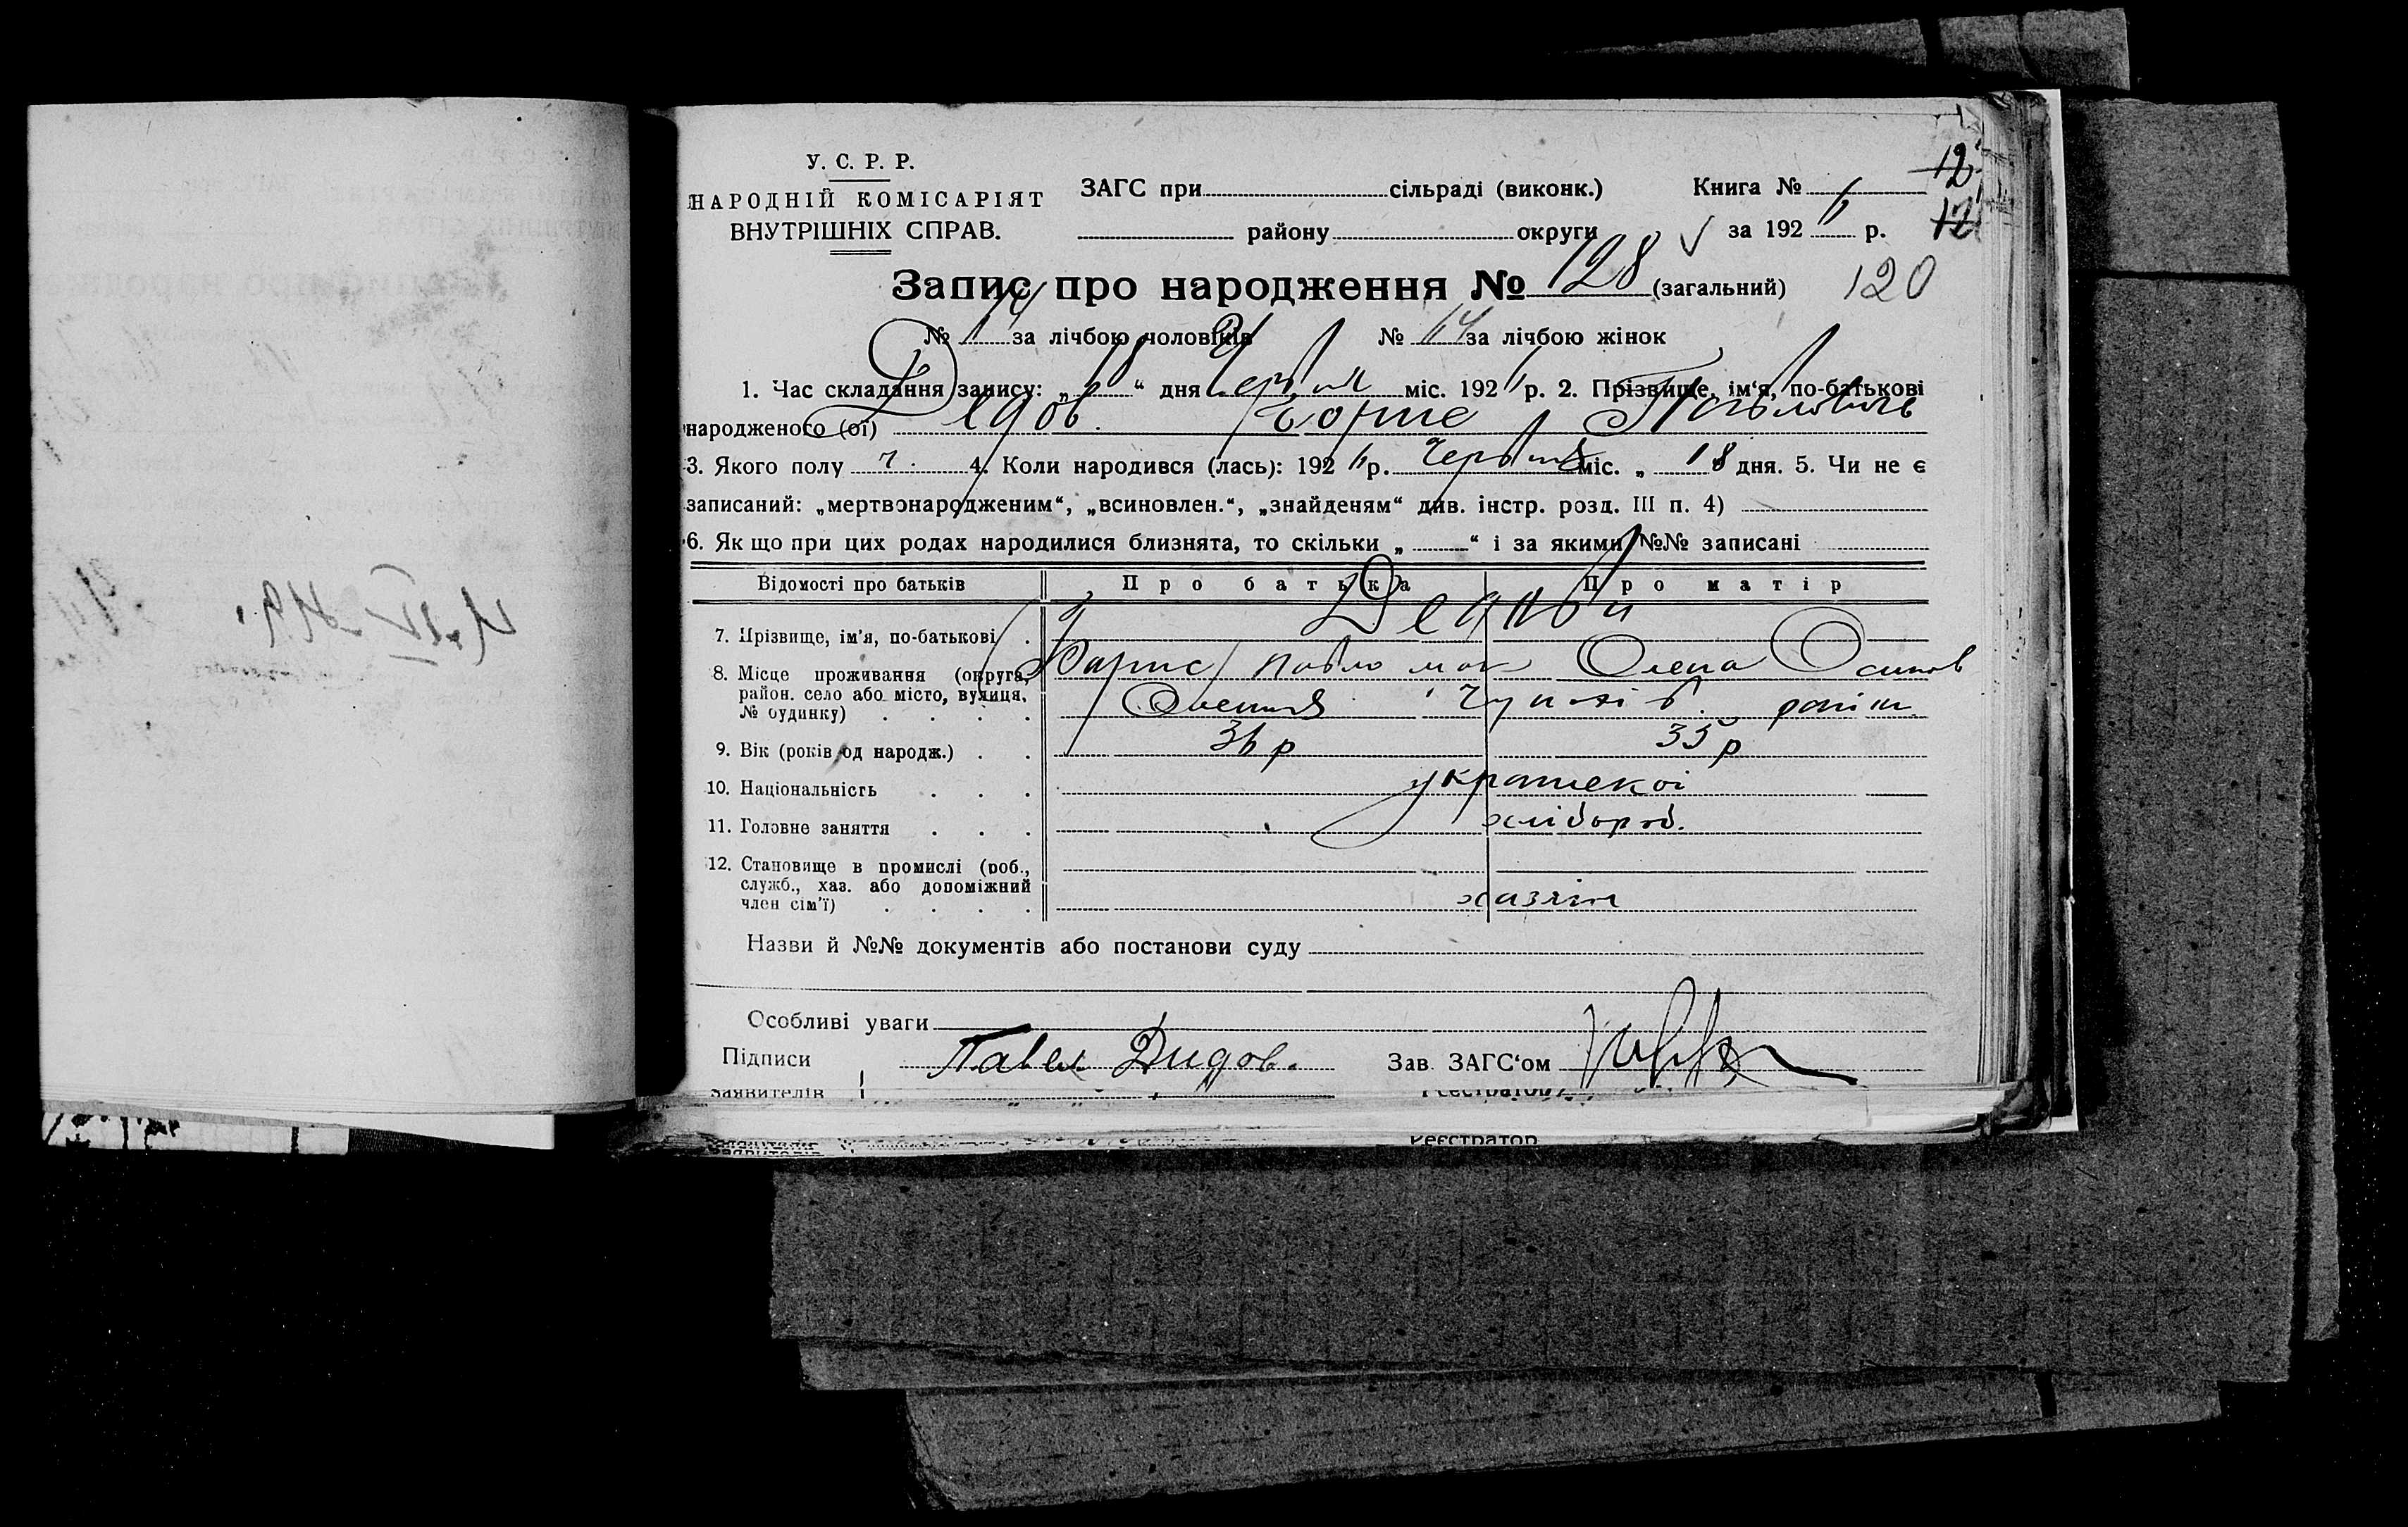 У. С. Р. Р.
НАРОДНІЙ КОМІСАРІЯТ
ВНУТРІШНІХ СПРАВ.
ЗАГС при сільраді (виконк.) Книга №
району округи за 192 р.
12
12
Запис про народження № 128 (загальний) 120
№ за лічбою чоловіків № 14 за лічбою жінок
1. Час складання запису: „18“ дня Червня міс. 1926 р. 2. Прізвище, ім'я, по-батькові
народженого (ої) Дедов Борис Павлович
3. Якого полу ч. 4. Коли народився (лась): 1926 р. Червня міс. „18 дня. 5. Чи не є
записаний: „мертвонародженим“, „всиновлен.“, „знайденям“ див. інстр. розд. III п. 4)
6. Як що при цих родах народилися близнята, то скільки „ “ і за якими №№ записані
Відомості про батьків Про батька Про матір
7. Прізвище, ім'я, по-батькові
8. Місце проживання (округа, район. село або місто, вулиця, № будинку)
Борис Павло Олена Осипов
9. Вік (років од народж.) 36 р 35 р
10. Національність
11. Головне заняття хлібороб.
12. Становище в промислі (роб., служб., хаз. або допоміжний член сім'ї) хазяїн
Назви й №№ документів або постанови суду
Особливі уваги
Підписи Павел Дидов. Зав. ЗАГС'ом
заявителів
Реєстратор